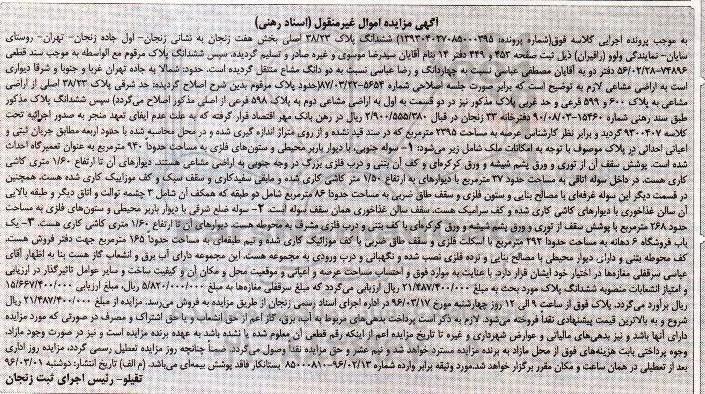 آگهی مزایده اموال غیرمنقول (اسناد رهنی)
به موجب پرونده اجرایی کلاسه فوق(شماره پرونده: ۱۳۹۳۰۴۰۲۷۰۸۵۰۰۰۳۹۵) ششدانگ پلاک ۳۸/۲۳ اصلی بخش هفت زنجان به نشانی زنجان- اول جاده زنجان- تهران- روستای
سایان- نمایندگی ولوو (رافیران) ذیل ثبت صفحه ۴۵۳ و ۴۴۹ دفتر ۱۴ بنام آقایان سیدرضا موسوی و غیره صادر و تسلیم گردیده. سپس ششدانگ پلاک مرقوم مع الواسطه به موجب سند قطعی
۷۴۸۹۶-۵۶/۰۲/۲۸ دفتر دو به آقایان مصطفی عباسی نسبت به چهاردانگ و رضا عباسی نسبت به دو دانگ مشاع منتقل گردیده است. حدود: شمالا به جاده تهران غربا و جنوبا و شرقا دیواری
است به اراضی مشاعی لازم به توضیح است که برابر صورت جلسه اصلاحی شماره ۵۶۵۴-۸۷/۰۳/۲۲ حدود پلاک مرقوم بدین شرح اصلاح گردیده: حد شرقی پلاک ۳۸/۲۳ اصلی از اراضی
مشاعی به پلاک ۶۰۰ و ۵۹۹ فرعی و حد غربی پلاک مذکور نیز در دو قسمت به اول به اراضی مشاعی دوم به پلاک ۵۹۸ فرعی از اصلی مذکور اصلاح می‌گردد) سپس ششدانگ پلاک مذکور
طبق سند رهنی شماره ۱۵۴۶۰-۹۰/۰۸/۰۳ دفترخانه ۳۳ زنجان در قبال ۲/۹۰۰/۵۵۵/۳۸۰ ریال در رهن بانک مهر اقتصاد قرار گرفته که به علت عدم ایفای تعهد منجر به صدور اجرائیه تحت
کلاسه ۹۳۰۰۴۰۷ گردید و برابر نظر کارشناس عرصه به مساحت ۲۳۹۵ مترمربع که در سند قید نشده و از روی متراژ اندازه گیری شده و در محل محاسبه شده با حدود اربعه مطابق جریان ثبتی و
اعیانی احداثی در پلاک موصوف با توجه به امکانات ملک شامل زیر می‌شود: ۱- سوله جنوبی با دیوار باربر محیطی و ستون‌های فلزی به مساحت حدودا ۹۴۰ مترمربع به عنوان تعمیرگاه احداث
شده است. پوشش سقف آن از توری و ورق پشم شیشه و ورق کرکره‌ای و کف آن بتنی و درب فلزی بزرگ در وجه جنوبی به اراضی مشاعی هستند. دیوارهای آن تا ارتفاع ۱/۶۰ متری کاشی
کاری هست. و داخل سوله اتاقی به مساحت حدود ۳۷ مترمربع با دیوارهای به ارتفاع ۱/۵۰ متر کاشی کاری شده و مابقی سفیدکاری و سقف سبک و کف موزاییک کاری شده هست. همچنین
در قسمت دیگر این سوله غرفه‌ای با مصالح بنایی و ستون فلزی و سقف طاق ضربی به مساحت حدودا ۸۶ مترمربع شامل دو طبقه که همکف آن شامل ۳ چشمه توالت و اتاق دیگر و طبقه بالایی
آن سالن غذاخوری با دیوارهای کاشی کاری شده و کف سرامیک هست. سقف سالن غذاخوری همان سقف سوله است. ۲- سوله ضلع شرقی با دیوار باربر محیطی و ستون‌های فلزی به مساحت
حدود ۲۶۸ مترمربع با پوشش سقف از توری و ورق پشم شیشه و ورق کرکره‌ای با کف بتنی و درب فلزی مشرف به محوطه هست. دیوارهای آن تا ارتفاع ۱/۶۰ متری کاشی کاری هست. ۳- یک
باب فروشگاه ۶ دهانه به مساحت حدودا ۲۹۲ مترمربع با اسکلت فلزی و سقف طاق ضربی با کف موزائیک کاری شده و نیم طبقه‌ای به مساحت حدودا ۱۶۵ مترمربع جهت دفتر فروش هست.
کف محوطه بتنی و دارای دیوار محیطی با مصالح بنایی و نرده فلزی نصب شده و نگهبانی و درب ورودی به مجموعه هست. این مجموعه دارای آب برق و انشعاب گاز هست بنا به اظهار آقای
عباسی سرقفلی مغازه‌ها در اختیار خود ایشان قرار دارد. با عنایت به موارد فوق و احتساب مساحت عرصه و اعیانی و موقعیت محل و مکان آن و کیفیت ساخت و سایر عوامل تاثیرگذار در ارزیابی
و امتیاز انشعابات منصوبه ششدانگ پلاک مورد بحث به مبلغ ۲۱/۴۸۷/۴۰۰/۰۰۰ ریال ارزیابی می‌گردد که مبلغ سرقفلی مغازه‌ها به مبلغ ۵/۸۲۰/۰۰۰/۰۰۰ ریال، مبلغ ارزیابی ۱۵/۶۶۷/۴۰۰/۰۰۰
ریال برآورد می‌گردد. پلاک فوق از ساعت ۹ الی ۱۲ روز چهارشنبه مورخ ۹۶/۰۳/۱۷ در اداره اجرای اسناد رسمی زنجان از طریق مزایده به فروش می‌رسد. مزایده از مبلغ ۲۱/۴۸۷/۴۰۰/۰۰۰ ریال
شروع و به بالاترین قیمت پیشنهادی نقدا فروخته می‌شود. لازم به ذکر است پرداخت بدهی‌های مربوط به آب، برق، گاز اعم از حق انشعاب و یا حق اشتراک و مصرف در صورتی که مورد مزایده
دارای آنها باشد و نیز بدهی‌های مالیاتی و عوارض شهرداری و غیره تا تاریخ مزایده اعم از اینکه رقم قطعی آن معلوم شده یا نشده باشد به عهده برنده مزایده است و نیز در صورت وجود مازاد،
وجوه پرداختی بابت هزینه‌های فوق از محل مازاد به برنده مزایده مسترد خواهد شد و نیم عشر و حق مزایده نقدا وصول می‌گردد. ضمناً چنانچه روز مزایده تعطیل رسمی گردد، مزایده روز اداری
بعد از تعطیلی در همان ساعت و مکان مقرر برگزار خواهد شد. مورد وثیقه برابر وارده شماره ۸۵۰۰۰۸۱۰-۹۶/۰۲/۱۳ بستانکار فاقد پوشش بیمه‌ای می‌باشد. (م الف) تاریخ انتشار: دوشنبه ۹۶/۰۳/۰۱
تقیلو- رئیس اجرای ثبت زنجان